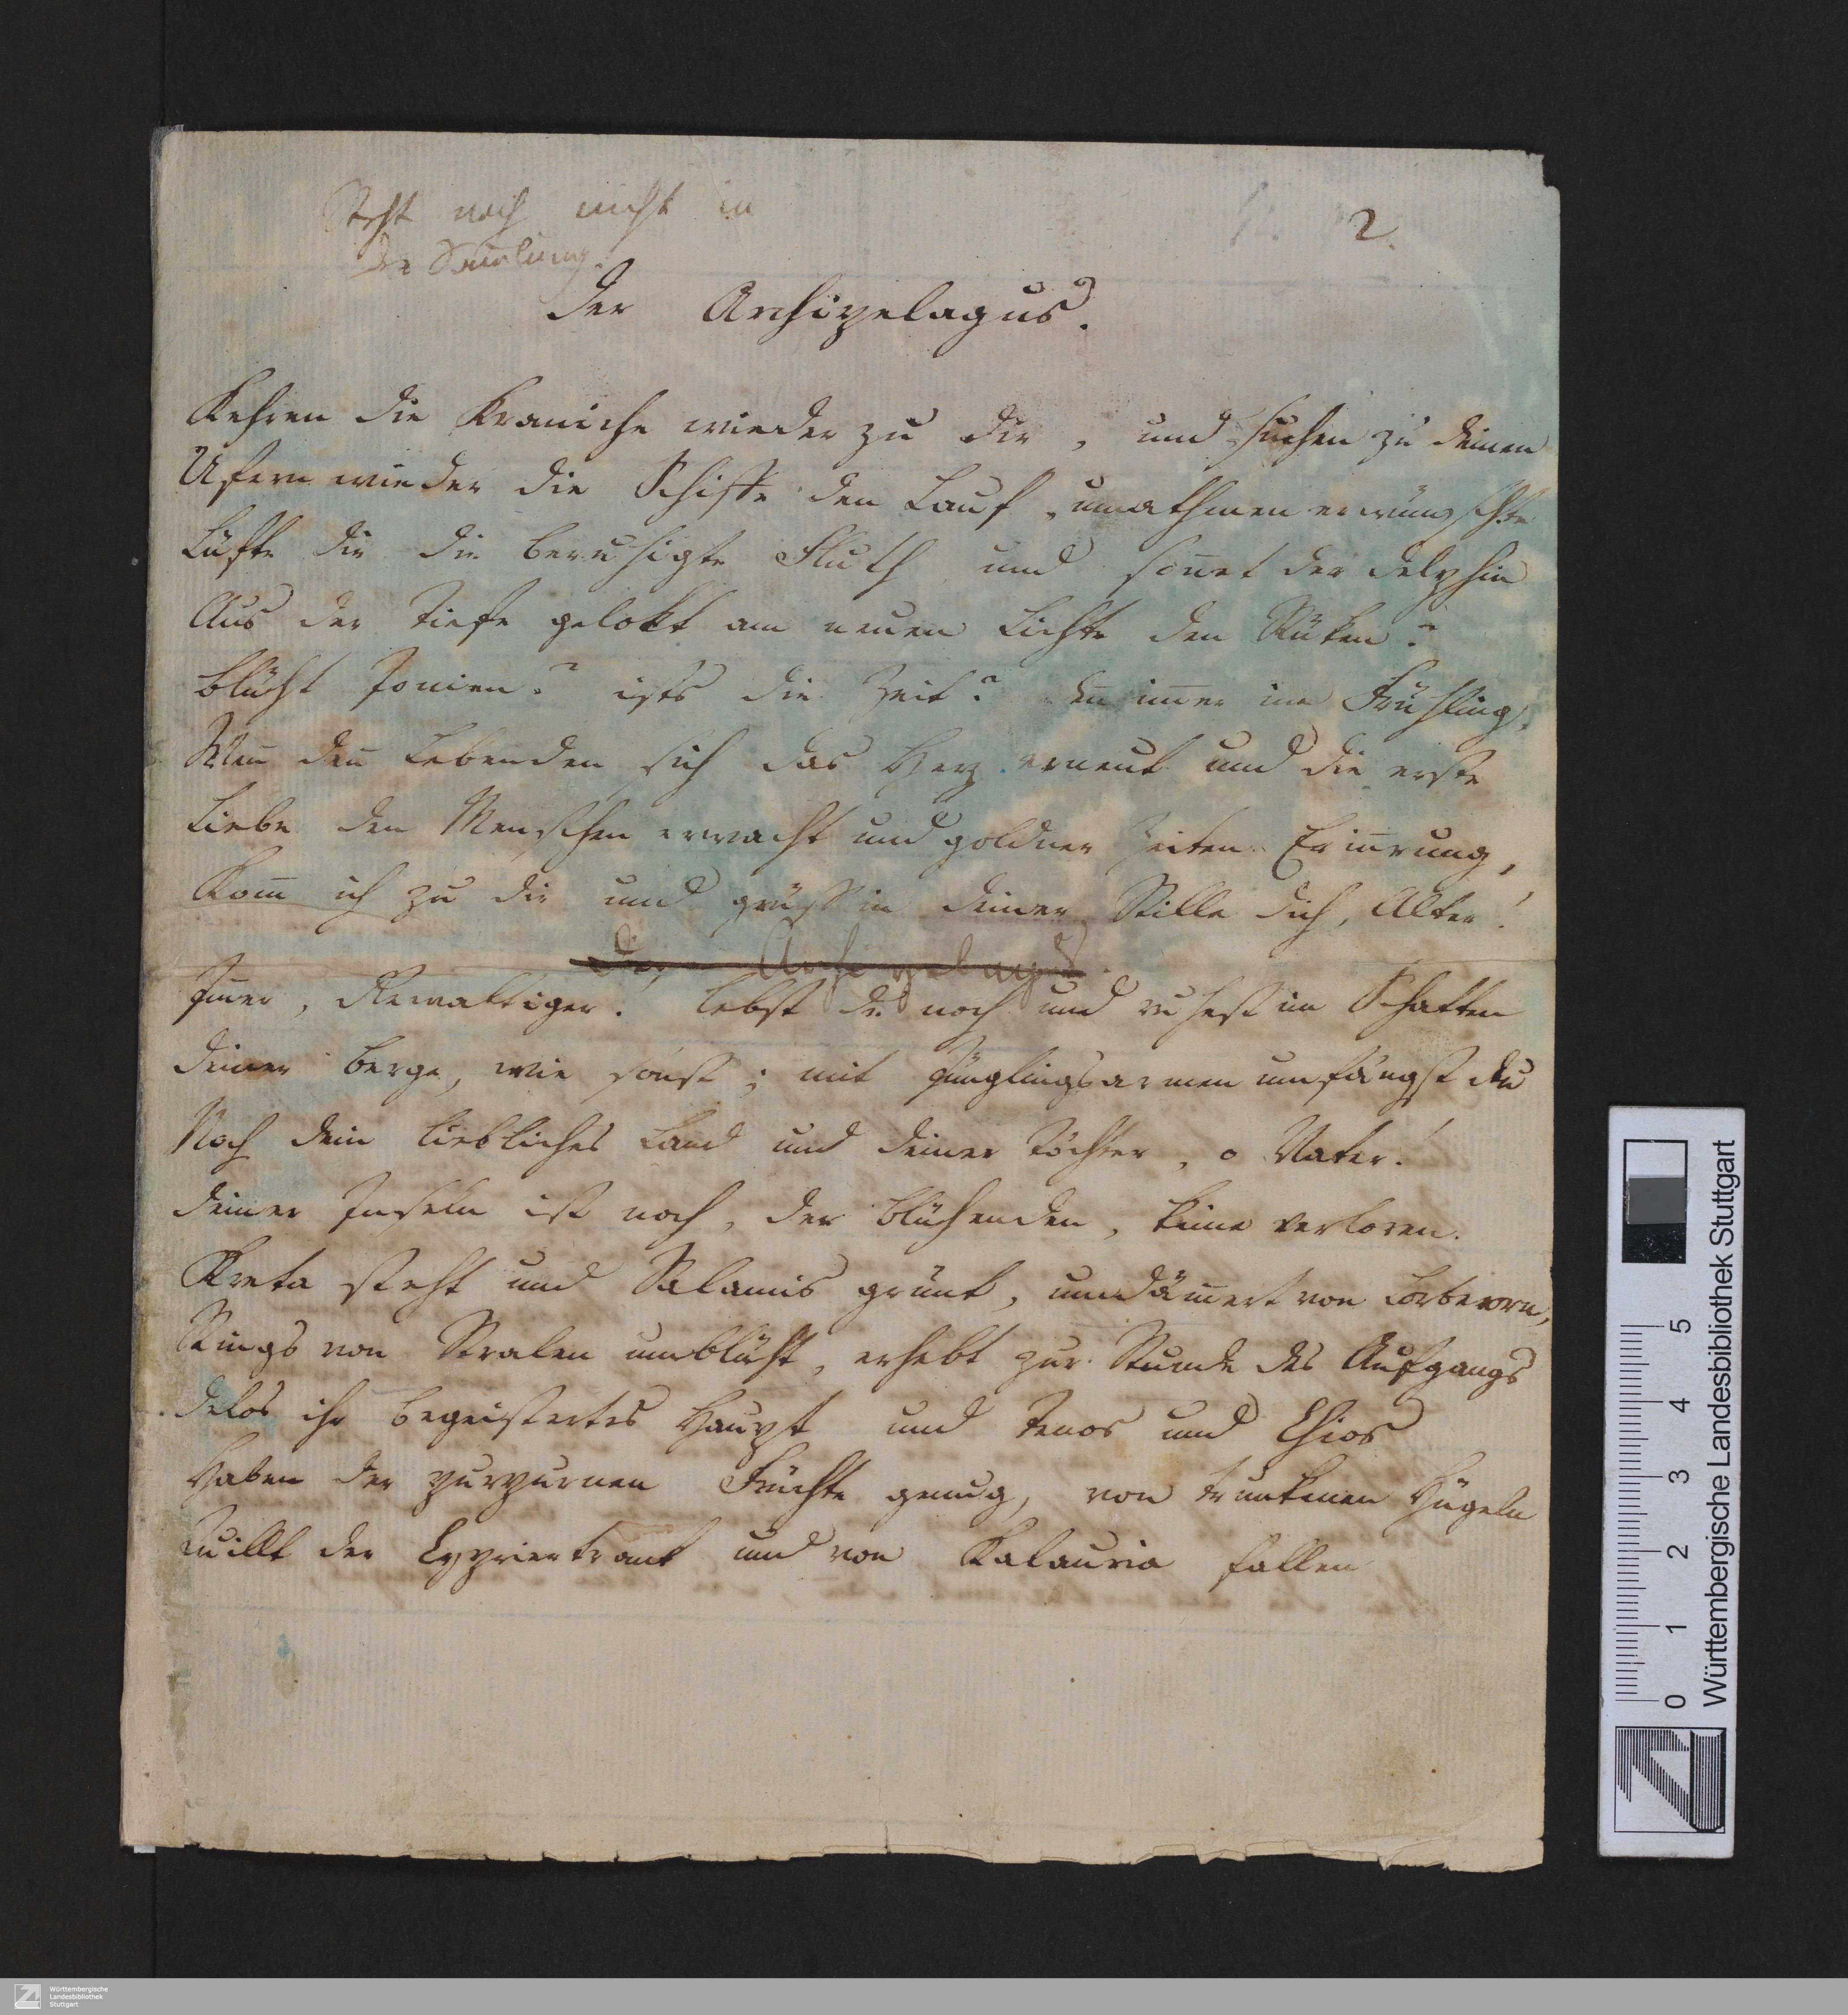 Steht noch nicht in
der Samlung.
2.
Der Archipelagus.
Kehren die Kraniche wieder zu dir, und suchen zu deinen
Ufern wieder die Schiffe den Lauf, umathmen erwünschte
Lüfte dir die beruhigte Fluth und soñet der Delphin
Aus der Tiefe gelokt am neuen Lichte den Rüken?
Blüht Jonien? ists die Zeit? deñ im̃er im Frühling,
Weñ deñ Lebenden sich das Herz erneut und die erste
Liebe den Menschen erwacht und goldner Zeiten Eriñrung,
Kom̃ ich zu dir und grüß in deiner Stille dich, Alter!
Der Archipelagus.
Im̃er, Gewaltiger! lebst du noch und ruhest im Schatten
Deiner Berge, wie sonst; mit Jünglingsarmen umfängst du
Noch dein liebliches Land und deiner Töchter, o Vater!
Deiner Inseln ist noch, der blühenden, keine verloren.
Kreta steht und Salamis grünt, umdäm̃ert von Lorbeeren,
Rings von Stralen umblüht, erhebt zur Stunde des Aufgangs
Delos ihr begeistertes Haupt und Tenos und Chios
Haben der purpurnen Früchte genug, von trunkenen Hügeln
Quillt der Cypriertrank und von Kalauria fallen
0 1 2 3 4 5
Württembergische Landesbibliothek Stuttgart
Württembergische
Landesbibliothek
Stuttgart